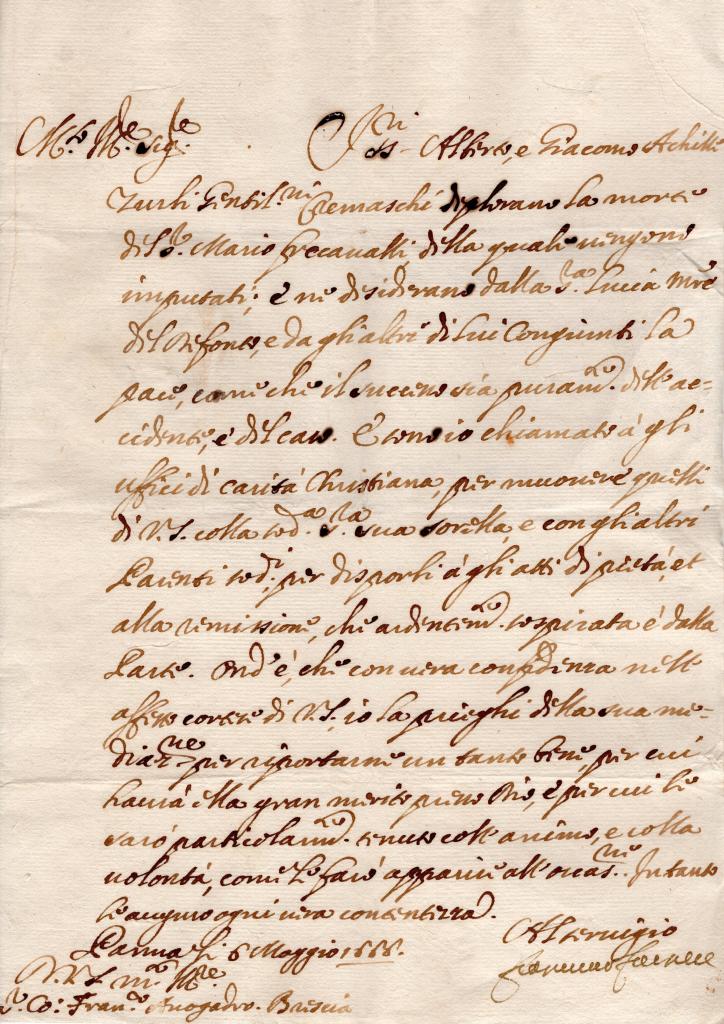 M.to Ill.e Sig.re Li ss.ri Alberto, e Giacomo Achille
Zurli Gentil.ni Cremaschi deplorano la morte
del S.r Mario Grecavalli, della quale vengono
imputati; e ne desiderano dalla S.ra Lucia Mre
del defonto, e da gli altri di lui Congiunti la
pace, come che il successo sia puram.te dell' ac-
cidente, e del caso. E sono io chiamato à gli
uffici di carità Christiana, per muovere quelli
di V.S. colla sod.a S.ra sua sorella, e con gli altri
Parenti sod.i, per disporli à gli atti di pietà, et
alla remissione, che ardentem.te sospirata è dalla
Parte. Ond' è, che con vera confidenza nell'
affetto cortese di V.S., io la prieghi della sua me-
diaz.ne per riportarne un tanto bene, per cui
haurà ella gran merito presso Dio, e per cui le
sarò particolarm.te tenuto coll' animo, e colla
volontà, come le farò apparire all' occas.ne. In tanto
le auguro ogni vera contentezza.
Parma li 6 Maggio 1668.
Al servigio
Farnese
V.S. m.to Ill.e
S.r Co: Fran.co Avogadro. Brescia